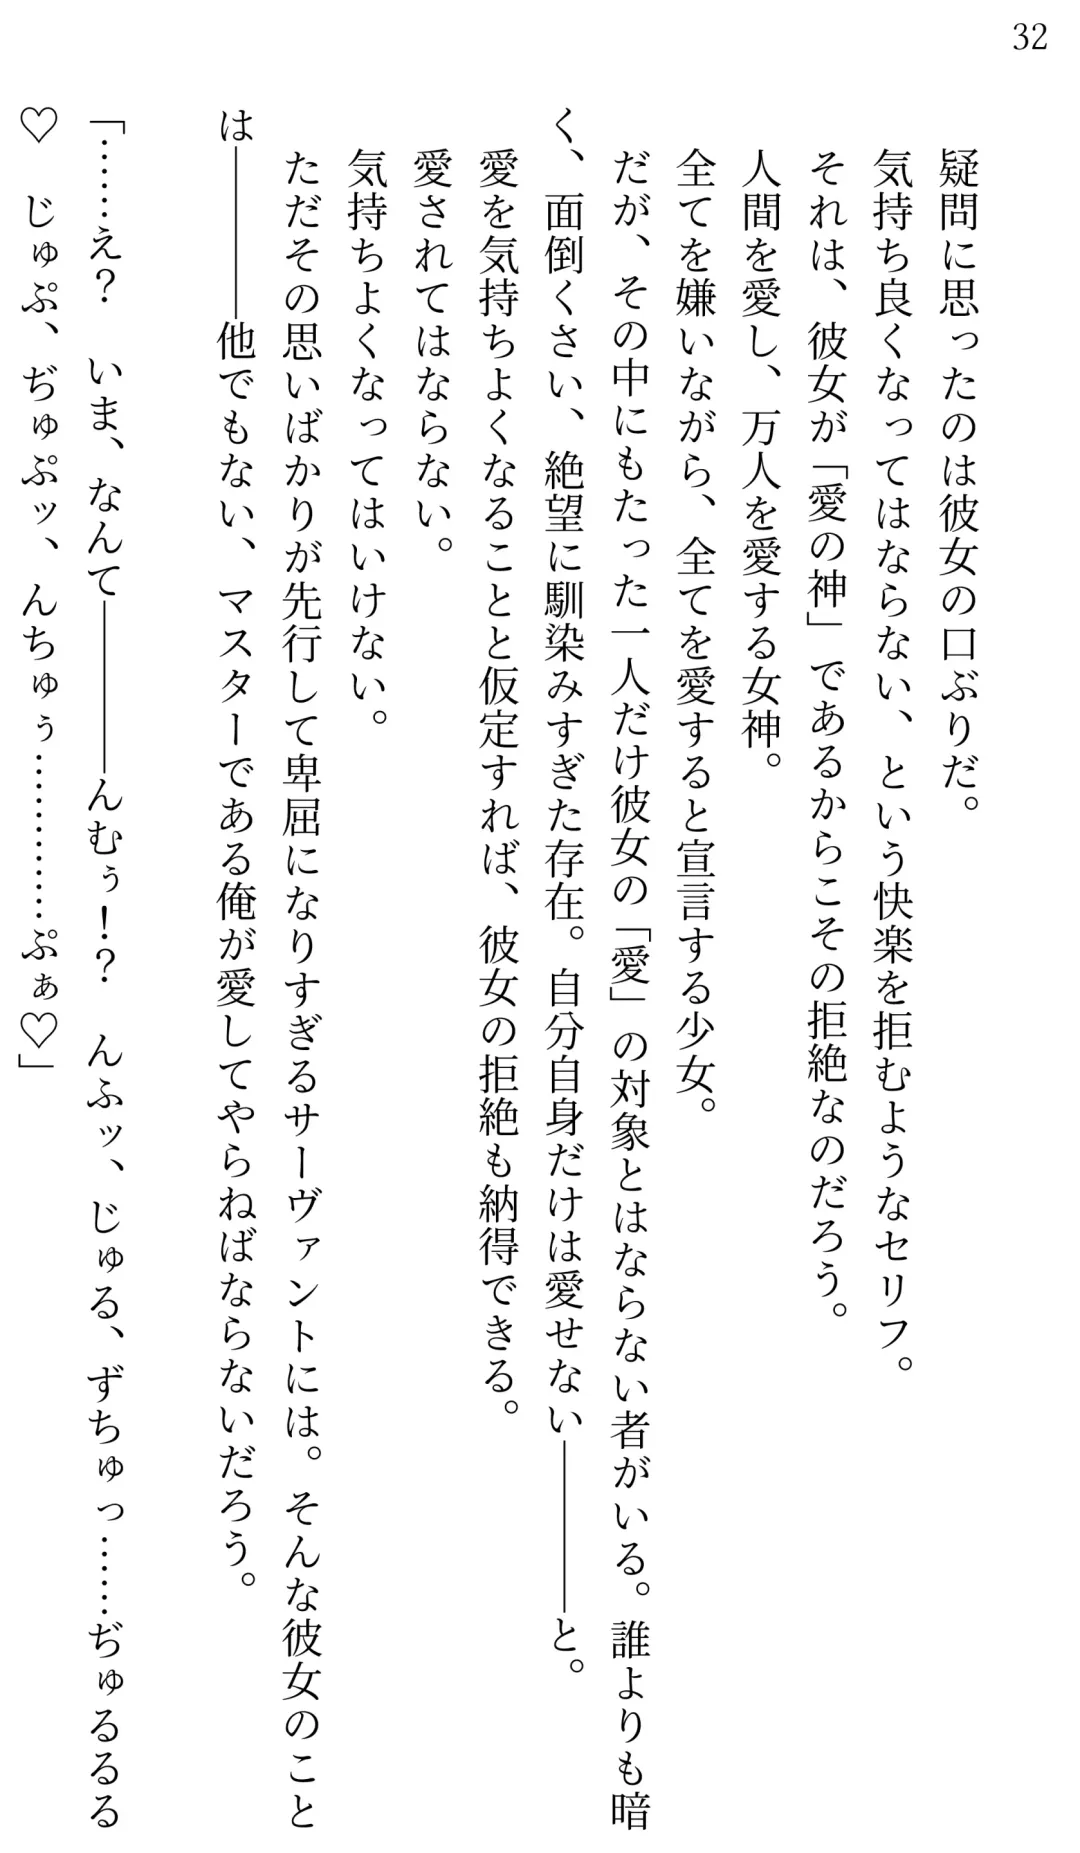 32
疑問に思ったのは彼女の口ぶりだ。
気持ち良くなってはならない、という快楽を拒むようなセリフ。
それは、彼女が「愛の神」であるからこその拒絶なのだろう。
人間を愛し、万人を愛する女神。
全てを嫌いながら、全てを愛すると宣言する少女。
だが、その中にもたった一人だけ彼女の「愛」の対象とはならない者がいる。誰よりも暗
く、面倒くさい、絶望に馴染みすぎた存在。自分自身だけは愛せない――――と。
愛を気持ちよくなることと仮定すれば、彼女の拒絶も納得できる。
愛されてはならない。
気持ちよくなってはいけない。
ただその思いばかりが先行して卑屈になりすぎるサーヴァントには。そんな彼女のこと
は――――他でもない、マスターである俺が愛してやらねばならないだろう。
「……え？　いま、なんて――――んむぅ！？　んふッ、じゅる、ずちゅっ……ぢゅるるる
♡　じゅぷ、ぢゅぷッ、んちゅぅ…………ぷぁ♡」